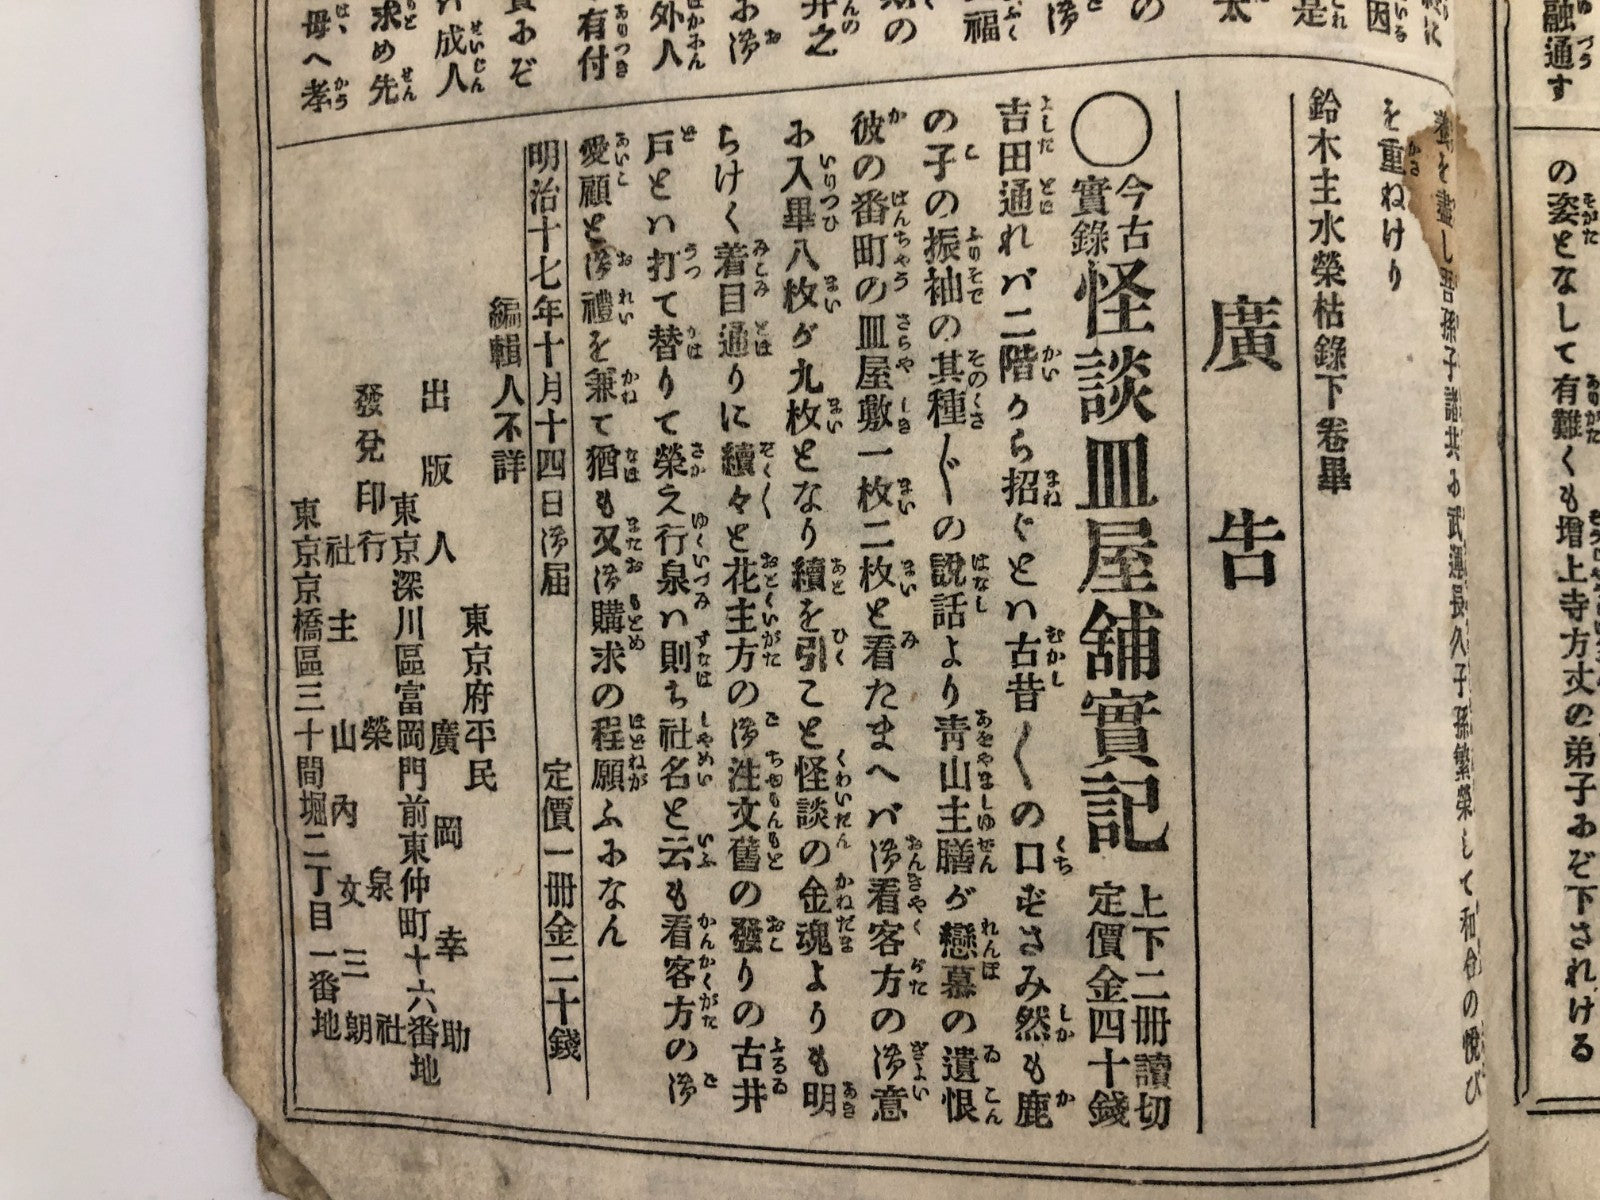 融通す
の姿となして有難くも増上寺方丈の弟子にぞ下されける
を重ねけり
鈴木主水榮枯錄下卷畢
廣告
〇今古實錄怪談皿屋舗實記 上下二冊讀切 定價金四十錢
吉田通れバ二階から招ぐとハ古昔〱の口ずさみ然も鹿
の子の振袖の其種〲の說話より靑山主膳が戀慕の遺恨
彼の番町の皿屋敷一枚二枚と看たまへバ御看客方の御意
に入畢八枚が九枚となり續を引こと怪談の金魂よりも明
らけく着目通りに續々と花主方の御注文舊の發りの古井
戸とハ打て替りて榮え行泉ハ則ち社名と云も看客方の御
愛顧と御禮を兼て猶も又御購求の程願ふになん
明治十七年十月十四日御届 定價一冊金二十錢
編輯人不詳
東京府平民
出版人 廣岡幸助
東京深川區富岡門前東仲町十六番地
發兌印行 榮泉社
社主 山內文三郎
東京京橋區三十間堀二丁目一番地